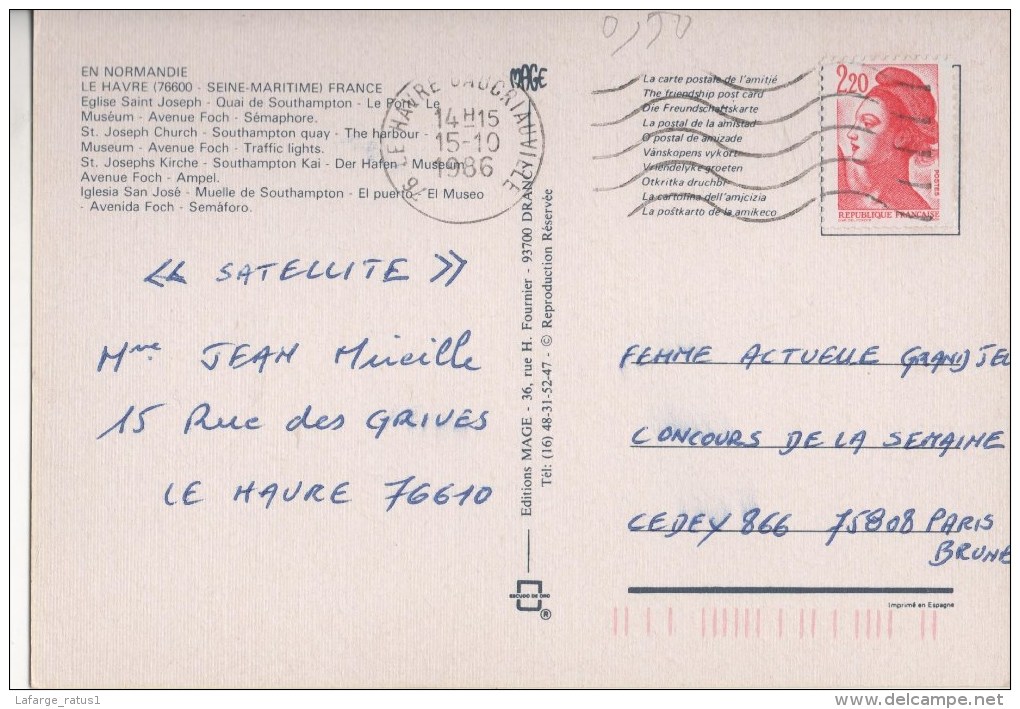 0,50
EN NORMANDIE
LE HAVRE (76600 - SEINE-MARITIME) FRANCE
Eglise Saint Joseph - Quai de Southampton - Le Port - Le
Muséum - Avenue Foch - Sémaphore.
St. Joseph Church - Southampton quay - The harbour -
Museum - Avenue Foch - Traffic lights.
St. Josephs Kirche - Southampton Kai - Der Hafen - Museum
Avenue Foch - Ampel.
Iglesia San José - Muelle de Southampton - El puerto - El Museo
- Avenida Foch - Semáforo.
LE HAVRE
14H15
15-10
1986
MAGE
La carte postale de l'amitié
The friendship post card
Die Freundschaftskarte
La postal de la amistad
O postal de amizade
Vänskopens vykort
Vriendelyke groeten
Otkritka druchbi
La cartolina dell'amjcizia
La poŝtkarto de la amikeco
2,20
POSTES
REPUBLIQUE FRANÇAISE
« SATELLITE »
Mme JEAN Mireille
15 Rue des GRIVES
LE HAVRE 76610
Editions MAGE - 36, rue H. Fournier - 93700 DRANCY
Tél: (16) 48-31-52-47 - © Reproduction Réservée
ESCUDO DE ORO
®
FEMME ACTUELLE GRAND JEU
CONCOURS DE LA SEMAINE
CEDEX 866 75808 PARIS
BRUNE
Imprimé en Espagne
Lafarge_ratus1
www.delcampe.net